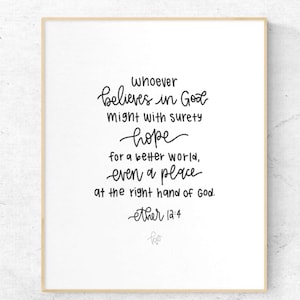 whoever
believes in God
might with surety
hope
for a better world,
even a place
at the right hand of God.
ether 12:4